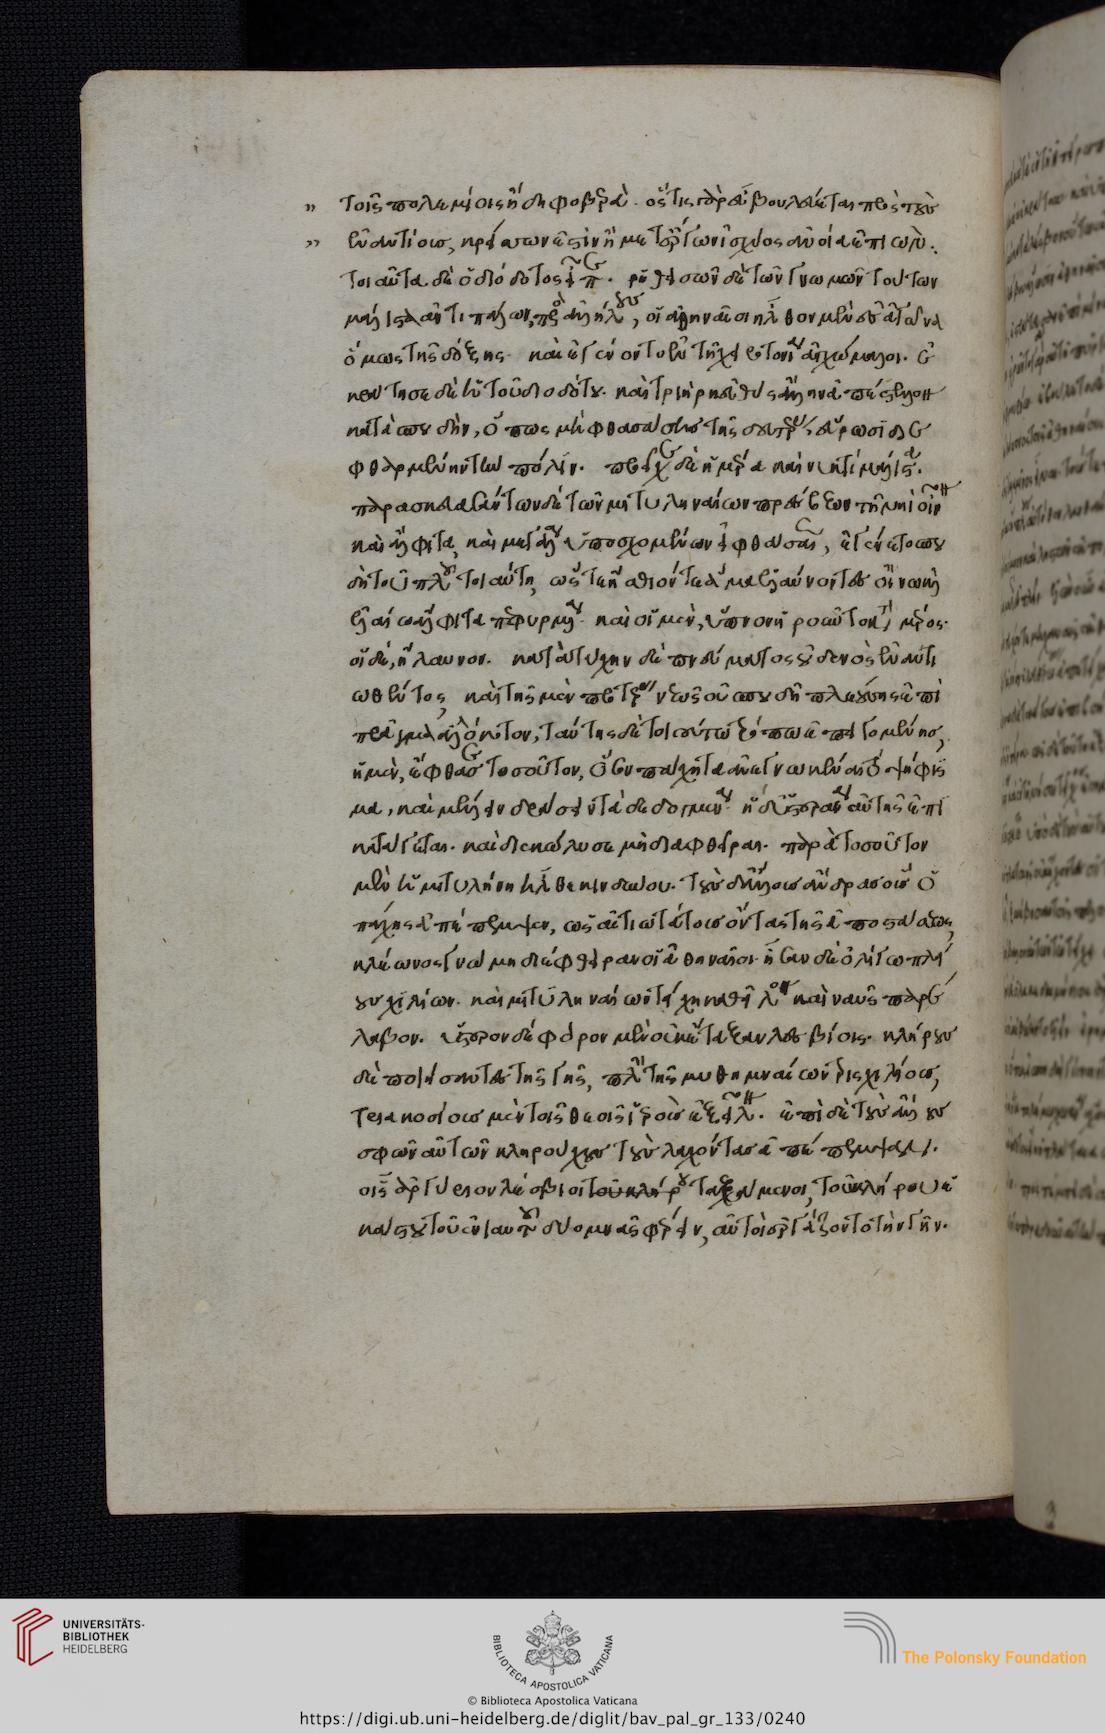 τοῖς πολεμίοις ἤδη φοβερά. ὅστις γὰρ εὖ βουλεύεται πρὸς τοὺς
ἐναντίους, κρείσσων ἐστὶν ἢ μετ' ἔργων ἰσχύος ἀνοίᾳ ἐπιών.
τοιαῦτα δὲ ὁ διόδοτος εἶπε. ῥηθεισῶν δὲ τῶν γνωμῶν τούτων
μάλιστα ἀντιπάλων πρὸς ἀλλήλους, οἱ ἀθηναῖοι ἦλθον μὲν ἐς ἀγῶνα
ὅμως τῆς δόξης. καὶ ἐγένοντο ἐν τῇ χειροτονίᾳ ἀγχώμαλοι. ἐ
κράτησε δὲ ἡ τοῦ διοδότου. καὶ τριήρη εὐθὺς ἄλλην ἀπέστελλον
κατὰ σπουδὴν, ὅπως μὴ φθασάσης τῆς
φθαρμένην τὴν πόλιν. προεῖχε δὲ ἡμέρᾳ καὶ νυκτὶ μάλιστα.
παρασκευασάντων δὲ τῶν μιτυληναίων πρέσβεων τῇ νηὶ οἶνον
καὶ ἄλφιτα, καὶ μεγάλα ὑποσχομένων εἰ φθάσαιεν, ἐγένετο σπου
δὴ τοῦ πλοῦ τοιαύτη, ὥστε ἤσθιόν τε ἅμα ἐλαύνοντες οἴνῳ καὶ
ἐλαίῳ ἄλφιτα πεφυρμένα. καὶ οἱ μὲν, ὕπνον ᾑροῦντο κατὰ μέρος.
οἱ δὲ, ἤλαυνον. κατὰ τύχην δὲ πνεύματος οὐδενὸς ἐναντι
ωθέντος, καὶ τῆς μὲν προτέρας νεὼς οὐ σπουδῇ πλεούσης ἐπὶ
πρᾶγμα ἀλλόκοτον, ταύτης δὲ τοιούτῳ τρόπῳ ἐπειγομένης,
ἡ μὲν, ἔφθασε τοσοῦτον, ὅσον πάχητα ἀνεγνωκέναι τὸ ψήφισ
μα, καὶ μέλλειν δράσειν τὰ δεδογμένα. ἡ δ' ὑστέρα αὐτῆς ἐπι
κατάγεται. καὶ διεκώλυσε μὴ διαφθεῖραι. παρὰ τοσοῦτον
μὲν ἡ μιτυλήνη ἦλθε κινδύνου. τοὺς δ' ἄλλους ἄνδρας οὓς ὁ
πάχης ἀπέπεμψεν, ὡς αἰτιωτάτους ὄντας τῆς ἀποστάσεως,
κλέωνος γνώμῃ διέφθειραν οἱ ἀθηναῖοι. ἦσαν δὲ ὀλίγῳ πλεί
ους χιλίων. καὶ μιτυληναίων τείχη καθεῖλον καὶ ναῦς παρέ
λαβον. ὕστερον δὲ φόρον μὲν οὐκ ἔταξαν λεσβίοις. κλήρους
δὲ ποιήσαντες τῆς γῆς, πλὴν τῆς μηθυμναίων τρισχιλίους,
τριακοσίους μὲν τοῖς θεοῖς ἱεροὺς ἐξεῖλον. ἐπὶ δὲ τοὺς ἄλλους
σφῶν αὐτῶν κληρούχους τοὺς λαχόντας ἀπέπεμψαν.
οἷς ἀργύριον λέσβιοι τοῦ κλήρου ταξάμενοι, τοῦ κλήρου ἑ
κάστου τοῦ ἐνιαυτοῦ δύο μνᾶς φέρειν, αὐτοὶ εἰργάζοντο τὴν γῆν.
UNIVERSITÄTS-
BIBLIOTHEK
HEIDELBERG
BIBLIOTECA APOSTOLICA VATICANA
The Polonsky Foundation
© Biblioteca Apostolica Vaticana
https://digi.ub.uni-heidelberg.de/diglit/bav_pal_gr_133/0240